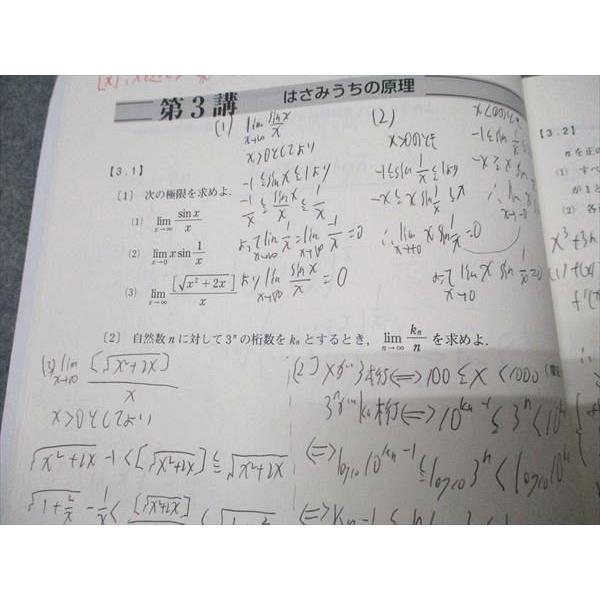 第3講 はさみうちの原理
【3.1】
〔1〕 次の極限を求めよ.
(1) lim x→∞ sin x / x
(2) lim x→0 x sin 1/x
(3) lim x→∞ [√x²+2x] / x
〔2〕 自然数 n に対して 3ⁿ の桁数を kₙ とするとき, lim n→∞ kₙ/n を求めよ.
(1) lim x→∞ sin x / x
x>0としてより
-1≦sin x≦1より
-1/x ≦ sin x/x ≦ 1/x
よって lim x→∞ 1/x = lim x→∞ -1/x = 0
より lim x→∞ sin x/x = 0
(2)
x>0のとき
-1≦sin 1/x≦1より
-x≦x sin 1/x≦x
∴ lim x→+0 x sin 1/x = 0
x<0のとき
-1≦sin 1/x
よって lim x→0 x sin 1/x = 0
(3) lim x→∞ [√x²+2x] / x
x>0としてより
√x²+2x -1 < [√x²+2x] ≦ √x²+2x
√1+2/x - 1/x < [√x²+2x]
〔2〕 xが3桁⇔100≦x<1000
3ⁿがkₙ桁⇔10^kₙ-1≦3ⁿ<10^kₙ
⇔log₁₀10^kₙ-1≦log₁₀3ⁿ<log₁₀10^kₙ
⇔kₙ-1≦n
【3.2】
n を正の
(1) すべ
が 1 と
(2) 各